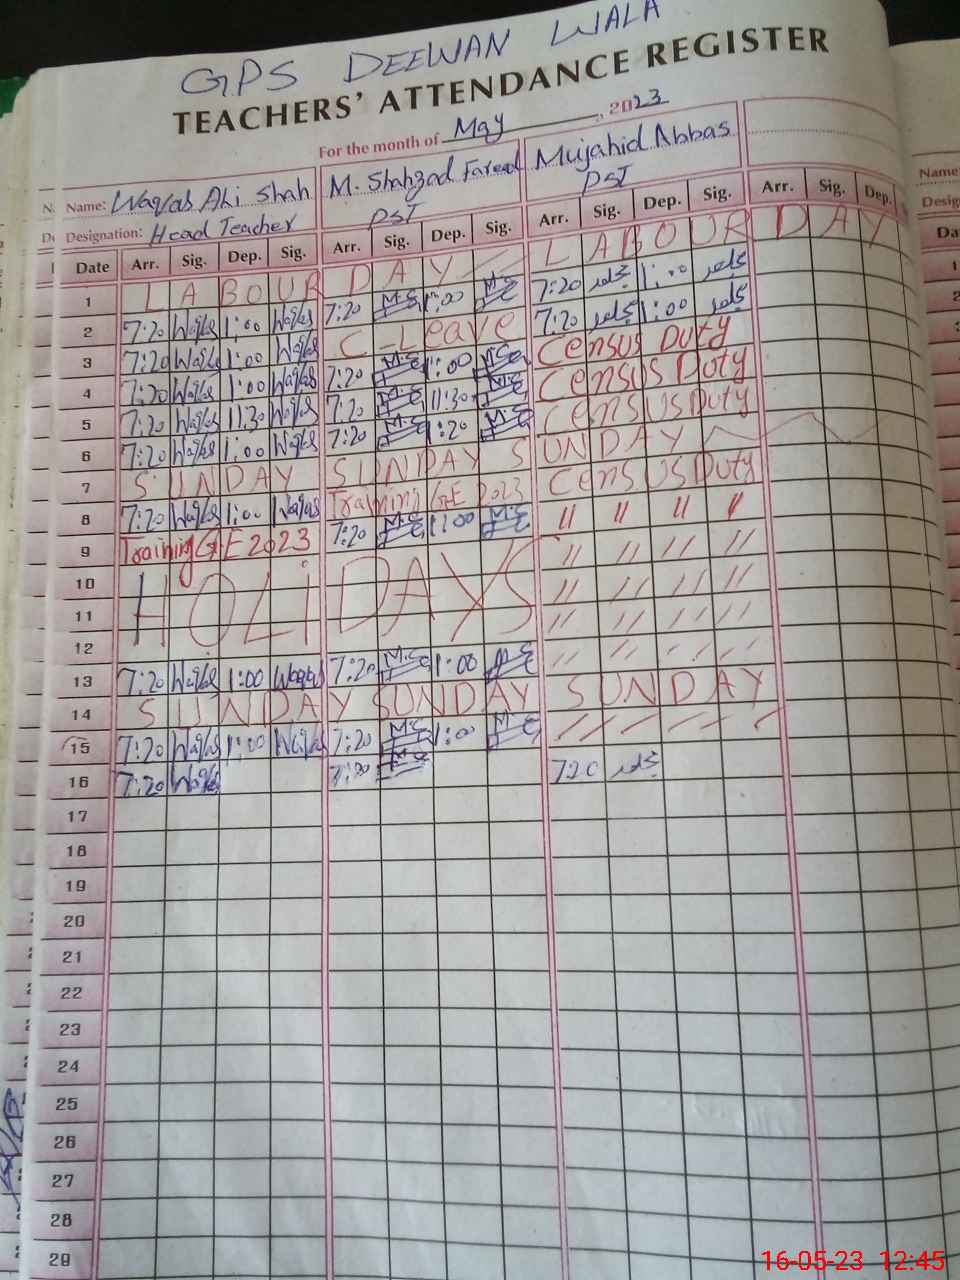 GPS DEEWAN WALA
TEACHERS' ATTENDANCE REGISTER
For the month of May, 2023
Name: Waqas Ali Shah M. Shahzad Fareed Mujahid Abbas
Designation: Head Teacher PST PST
Date Arr. Sig. Dep. Sig. Arr. Sig. Dep. Sig. Arr. Sig. Dep. Sig. Arr. Sig. Dep.
1 LABOUR DAY LABOUR DAY
2 7:20 Waqas 1:00 Waqas 7:20 M.S 1:00 M.S 7:20 1:00
3 7:20 Waqas 1:00 Waqas C-Leave 7:20 1:00
4 7:20 Waqas 1:00 Waqas 7:20 M.S 1:00 M.S Census Duty
5 7:20 Waqas 11:30 Waqas 7:20 M.S 11:30 M.S Census Duty
6 7:20 Waqas 1:00 Waqas 7:20 M.S 1:20 M.S Census Duty
7 SUNDAY SUNDAY SUNDAY
8 7:20 Waqas 1:00 Waqas Training GE 2023 Census Duty
9 Training GE 2023 7:20 M.S 1:00 M.S " " " "
10 HOLIDAYS " " " "
11 " " " "
12 " " " "
13 7:20 Waqas 1:00 Waqas 7:20 M.S 1:00 M.S " " " "
14 SUNDAY SUNDAY SUNDAY
15 7:20 Waqas 1:00 Waqas 7:20 M.S 1:00 M.S " " " "
16 7:20 Waqas 7:20 M.S 7:20
17
18
19
20
21
22
23
24
25
26
27
28
29
16-05-23 12:45